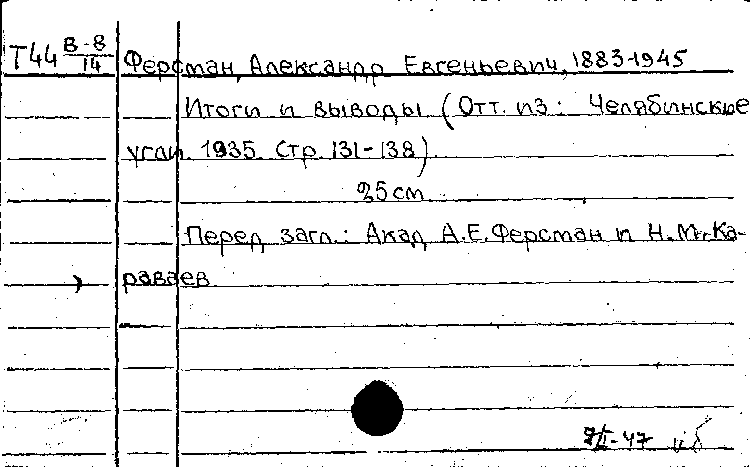 Т44 В-8/14 Ферсман, Александр Евгеньевич, 1883-1945
Итоги и выводы (Отт. из: Челябинские
угли. 1935. Стр. 131-138)
25 см
Перед загл.: Акад. А.Е.Ферсман и Н.М.Ка-
раваев